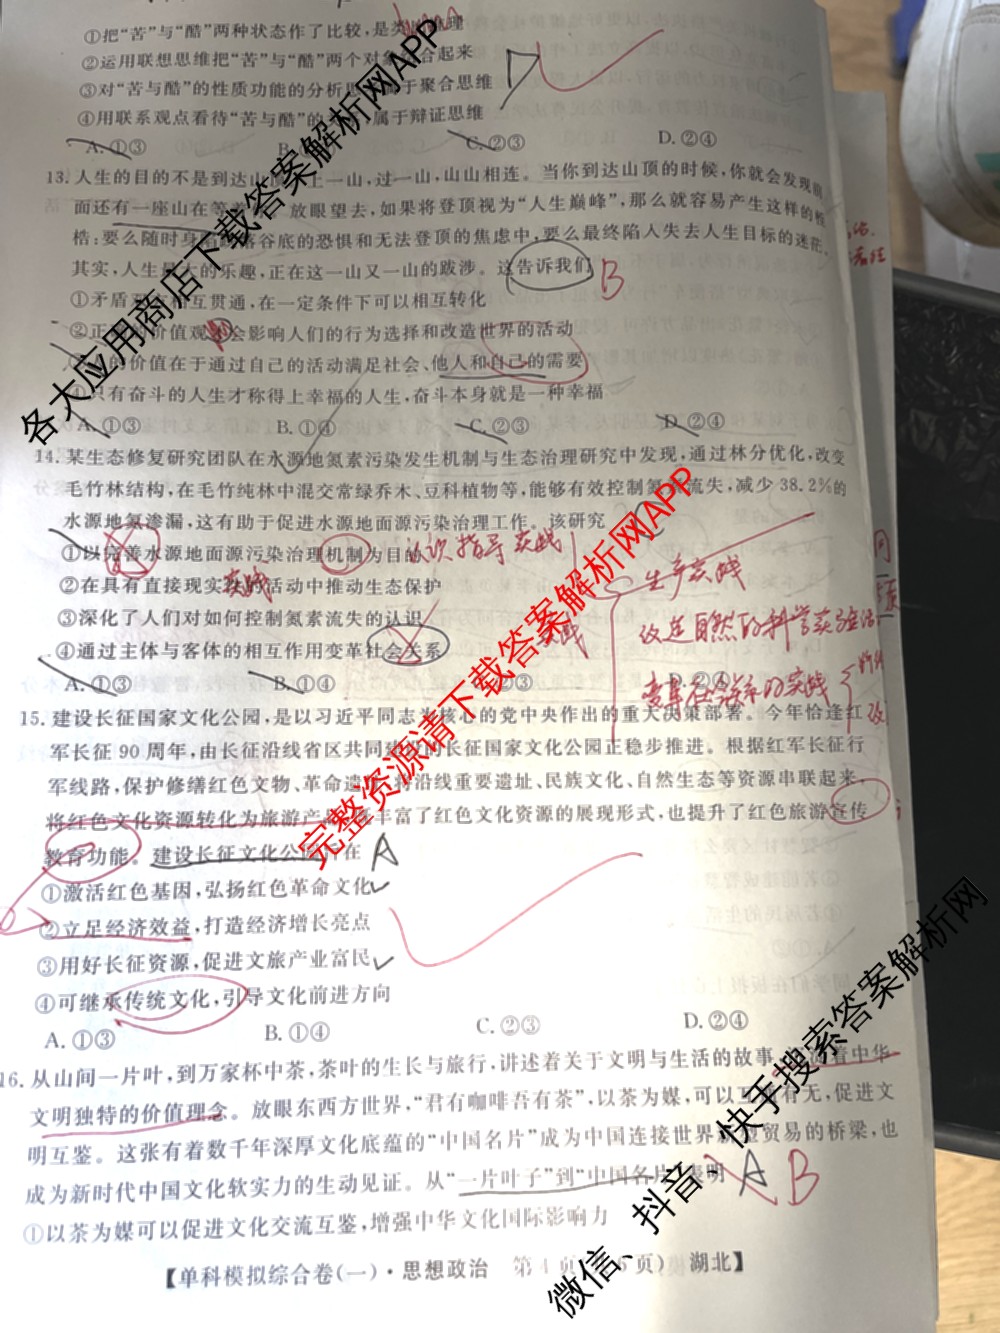 ①把“苦”与“酷”两种状态作了比较,是类 推理
②运用联想思维把“苦”与“酷”两个对象 合起来
③对“苦与酷”的性质功能的分析思 于聚合思维
④用联系观点看待“苦与酷”的 ,属于辩证思维
A. ①③ B. C. ②③ D. ②④
13. 人生的目的不是到达山 上一山,过一山,山山相连。当你到达山顶的时候,你就会发现
面还有一座山在等 放眼望去,如果将登顶视为“人生巅峰”,那么就容易产生这样的
桔:要么随时身 落谷底的恐惧和无法登顶的焦虑中,要么最终陷入失去人生目标的迷茫,
其实,人生最大的乐趣,正在这一山又一山的跋涉。这告诉我们
B
①矛盾 相互贯通,在一定条件下可以相互转化
②正 价值观 会影响人们的行为选择和改造世界的活动
的价值在于通过自己的活动满足社会、他人和自己的需要
④只有奋斗的人生才称得上幸福的人生,奋斗本身就是一种幸福
A. ①③ B. ①④ C. ②③ D. ②④
14. 某生态修复研究团队在水源地氮素污染发生机制与生态治理研究中发现,通过林分优化,改变
毛竹林结构,在毛竹纯林中混交常绿乔木、豆科植物等,能够有效控制氮 流失,减少 38.2%的
水源地氮渗漏,这有助于促进水源地面源污染治理工作。该研究
①以完善水源地面源污染治理机制为目的
认识指导实践
②在具有直接现实性的活动中推动生态保护
实践
生产实践
③深化了人们对如何控制氮素流失的认识
④通过主体与客体的相互作用变革社会关系
A. ①③ B. ①④ ②③ D. ②④
15. 建设长征国家文化公园,是以习近平同志为核心的党中央作出的重大决策部署。今年恰逢红
军长征 90 周年,由长征沿线省区共同建设的长征国家文化公园正稳步推进。根据红军长征行
军线路,保护修缮红色文物、革命遗 将沿线重要遗址、民族文化、自然生态等资源串联起来,
将红色文化资源转化为旅游产 丰富了红色文化资源的展现形式,也提升了红色旅游宣传
教育功能。建设长征文化公园 在
A
①激活红色基因,弘扬红色革命文化
②立足经济效益,打造经济增长亮点
③用好长征资源,促进文旅产业富民
④可继承传统文化,引导文化前进方向
A. ①③ B. ①④ C. ②③ D. ②④
16. 从山间一片叶,到万家杯中茶,茶叶的生长与旅行,讲述着关于文明与生活的故事, 着中华
文明独特的价值理念。放眼东西方世界,“君有咖啡吾有茶”,以茶为媒,可以互 有无,促进文
明互鉴。这张有着数千年深厚文化底蕴的“中国名片”成为中国连接世界 贸易的桥梁,也
成为新时代中国文化软实力的生动见证。从“一片叶子”到“中国名片” 表明
A B
①以茶为媒可以促进文化交流互鉴,增强中华文化国际影响力
【单科模拟综合卷(一)·思想政治 第 4 页( 6 页) 湖北】
各大应用商店下载答案解析网APP
完整资源请下载答案解析网APP
微信、抖音、快手搜索答案解析网